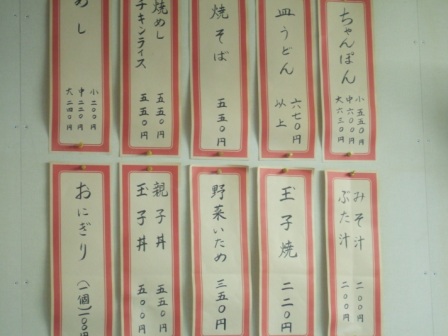 ちゃんぽん
小 五五〇円
中 六〇〇円
大 六五〇円
皿うどん
六七〇円
以上
焼そば
五五〇円
焼めし 五五〇円
チキンライス 五五〇円
めし
小 二〇〇円
中 二二〇円
大 二四〇円
みそ汁 二〇〇円
ぶた汁 二〇〇円
玉子焼
二二〇円
野菜いため
三五〇円
親子丼 五五〇円
玉子丼 五〇〇円
おにぎり
(一個)一〇〇円